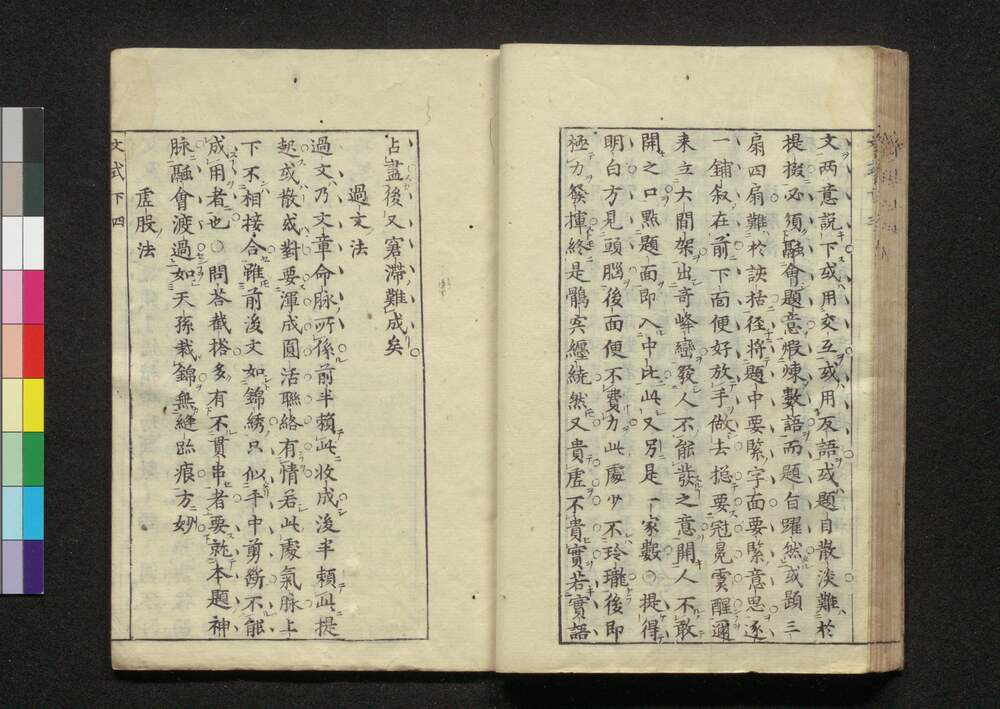 文両意説下或用交互或用反語或題目散淡難於
提掇必須融會題意煅煉數語而題自躍然或題三
扇四扇難於詼括徑將題中要緊字面要緊意思逐
一鋪叙在前下面便好放手做去揔要冠冕雲醒邇
来立大間架出奇峰巒發人不能發之意開人不敢
開之口點題面即入中比此又別是一家數○提得
明白方見頭腦後面便不費力此處少不玲瓏後即
極力發揮終是鶻突纏繞然又貴虚不貴實若實語
占盡後又窘滯難成矣
過文法
過文乃文章命脉所係前半頼此收成後半頼此提
起或散或對要渾成圓活聯絡有情若此處氣脉上
下不相接合雖前後文如錦綉只似平中剪断不能
成用者也○問荅截搭多有不貫串者要就本題神
脉融會渡過如天孫裁錦無縫跡痕方妙
虚股法
文式下四